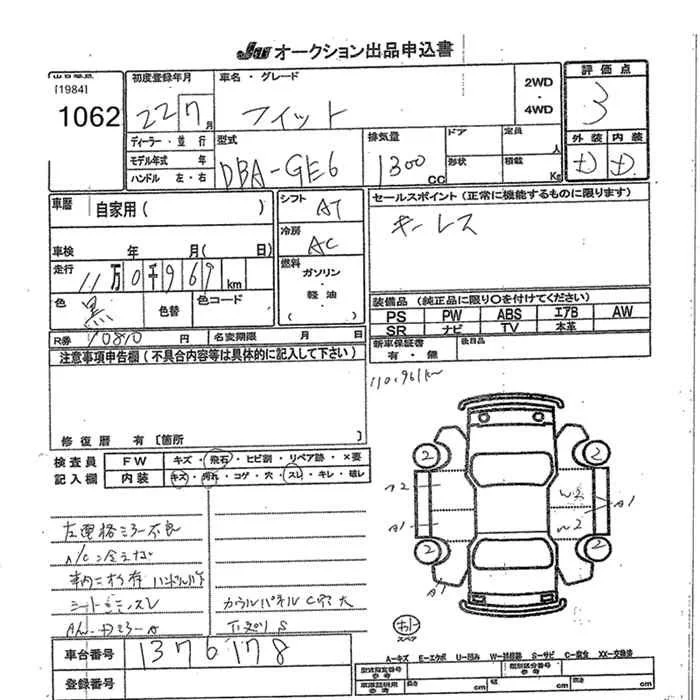 JAA オークション出品申込書
[1984]
1062
初度登録年月
22 7月
車名・グレード
フィット
2WD
・
4WD
評価点
3
外装 内装
D D
ディーラー・並行
モデル年式 年
ハンドル 左・右
型式
DBA-GE6
排気量
1300 CC
ドア
定員 人
形状
積載 Kg
車歴 自家用( )
シフト AT
セールスポイント(正常に機能するものに限ります)
キーレス
車検 年 月( 日)
冷房 AC
走行 11万0千969km
燃料
ガソリン・
軽油・
( )
色 黒
色替
色コード
装備品(純正品に限り○を付けてください)
PS PW ABS エアB AW
SR ナビ TV 本革
R券 10810 円
名変期限 月 日
新車保証書
有・無
後日品
注意事項申告欄(不具合内容等は具体的に記入して下さい)
110,969km
修復暦 有 [箇所
検査員
記入欄
FW キズ・飛石・ヒビ割・リペア跡・×要
内装 キズ・汚れ・コゲ・穴・スレ・キレ・破レ
2 2
A2 W2 A1
A1 W2
2 2
A1
左電格ミラー不良
A/C冷えない
カウルパネル
スペア
車台番号 1376178
登録番号
A-キズ E-エクボ U-凹み W-補修跡 S-サビ C-腐食 XX-交換済
型式指定番号
参考
類別区分番号
参考
車庫証明用
参考
長さ cm 幅 cm 高さ cm